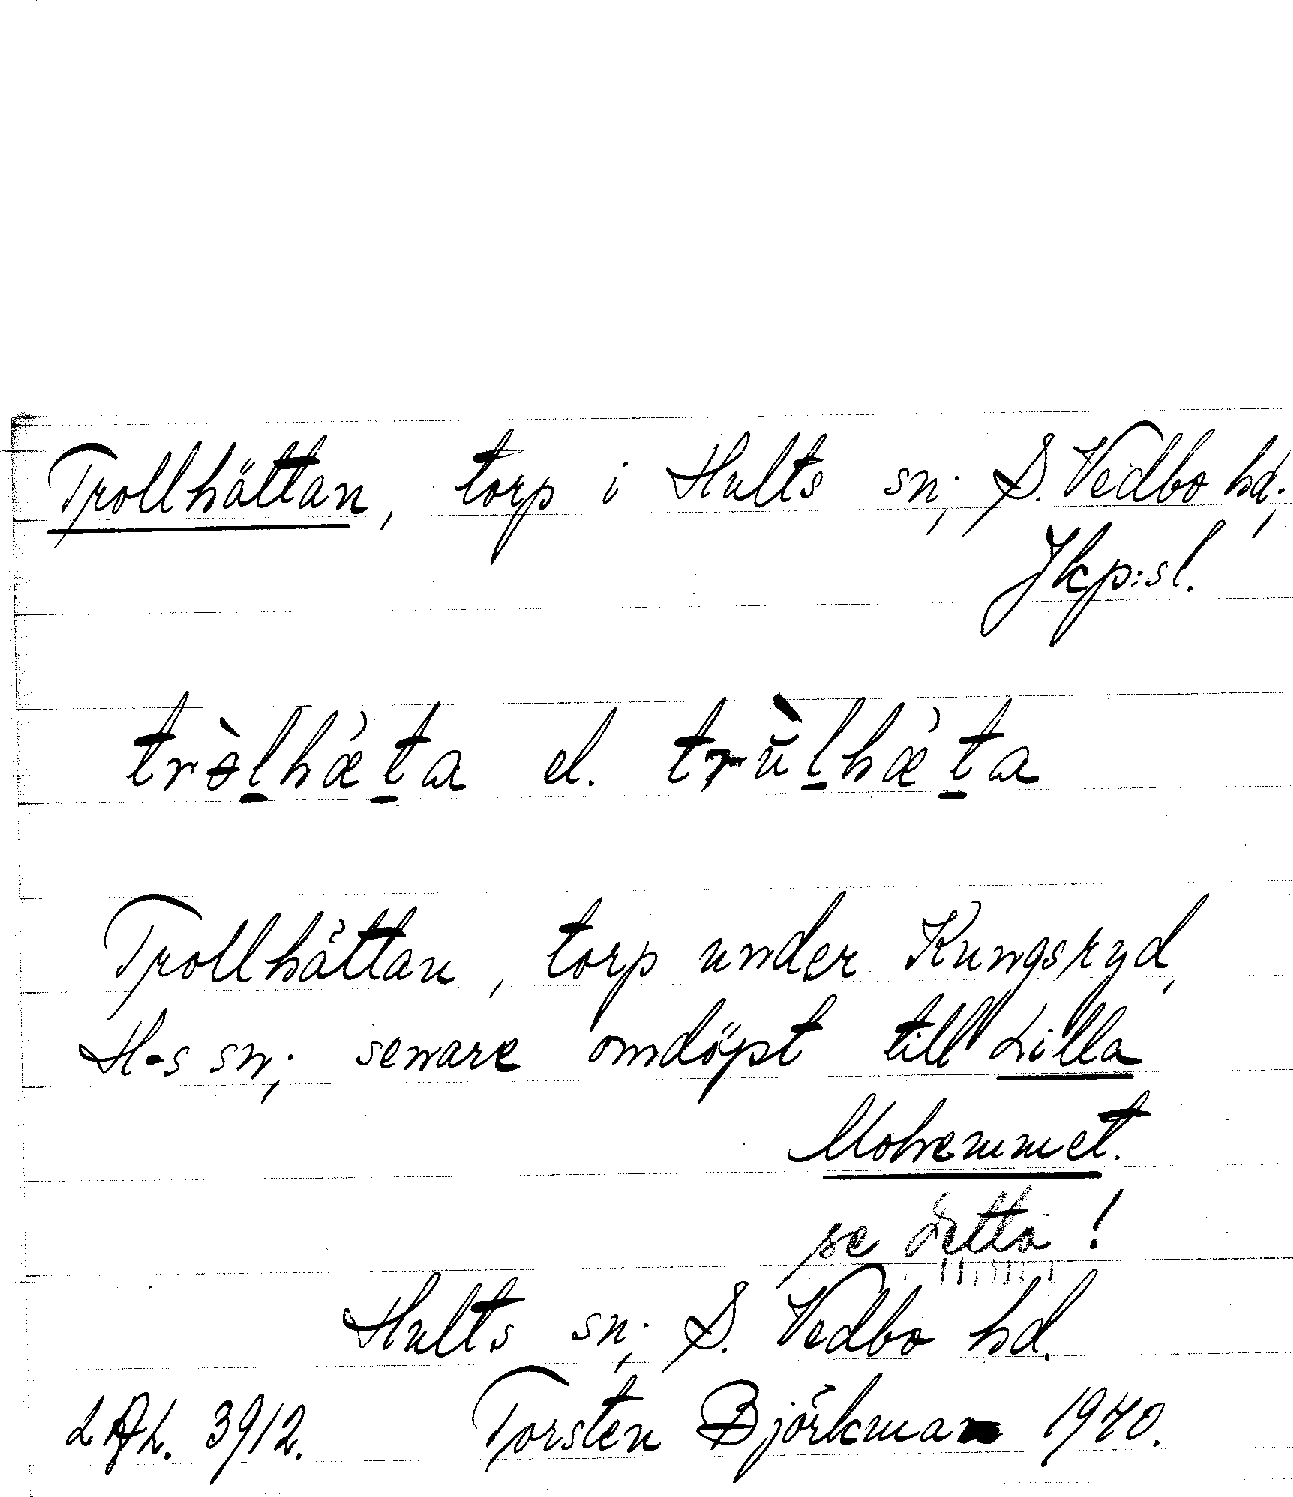 Trollhättan, torp i Hults sn; S. Vedbo hd.,
Jkp:sl.
trɵ̀l̲hǽt̲a el. trùl̲hǽt̲a
Trollhättan, torp under Kungsryd,
H-s sn; senare omdöpt till Lilla
Mohemmet.
se detta!
Hults sn; S. Vedbo hd.
LAL. 3912. Torsten Björkman 1940.